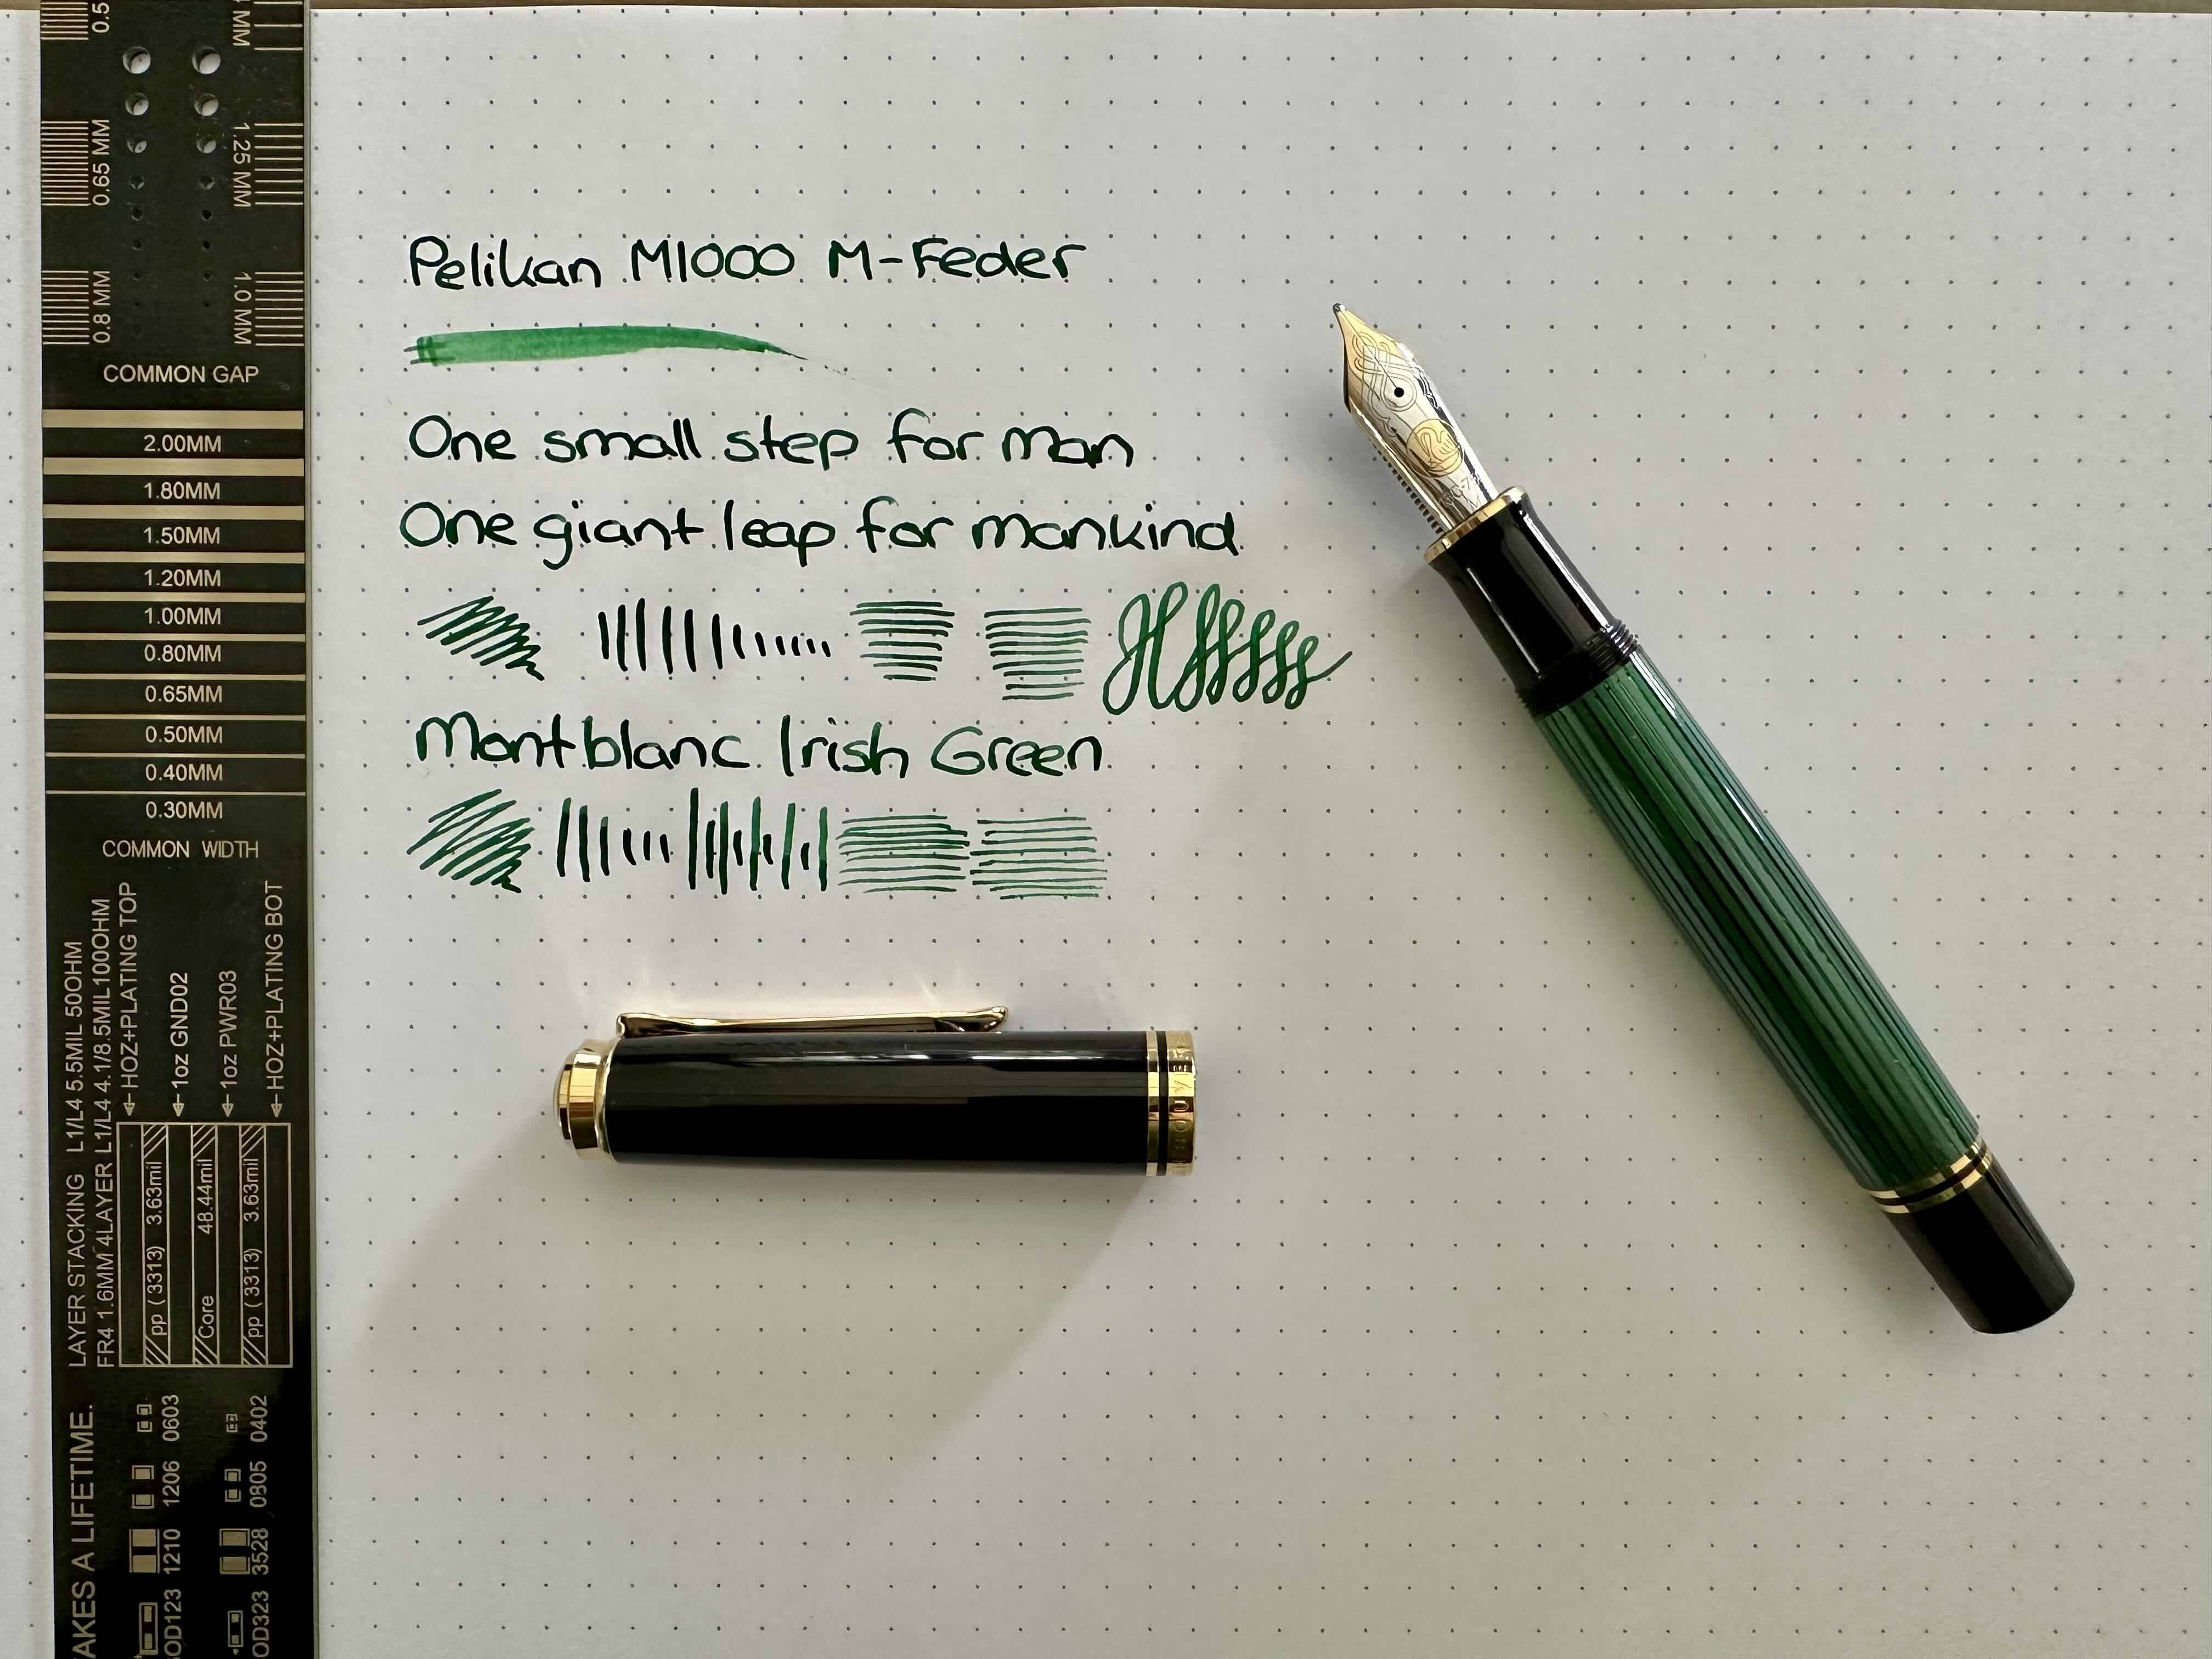 Pelikan M1000 M-Feder
One small step for man
One giant leap for mankind
Montblanc Irish Green
0.5
MM
0.65 MM
1.25 MM
0.8 MM
1.0 MM
COMMON GAP
2.00MM
1.80MM
1.50MM
1.20MM
1.00MM
0.80MM
0.65MM
0.50MM
0.40MM
0.30MM
COMMON WIDTH
LAYER STACKING L1/L4 5.5MIL 50OHM
FR4 1.6MM 4LAYER L1/L4 4.1/8.5MIL100OHM
HOZ+PLATING TOP
1oz GND02
1oz PWR03
HOZ+PLATING BOT
pp ( 3313) 3.63mil
Core 48.44mil
pp ( 3313) 3.63mil
AKES A LIFETIME.
OD123 1210 1206 0603
OD323 3528 0805 0402